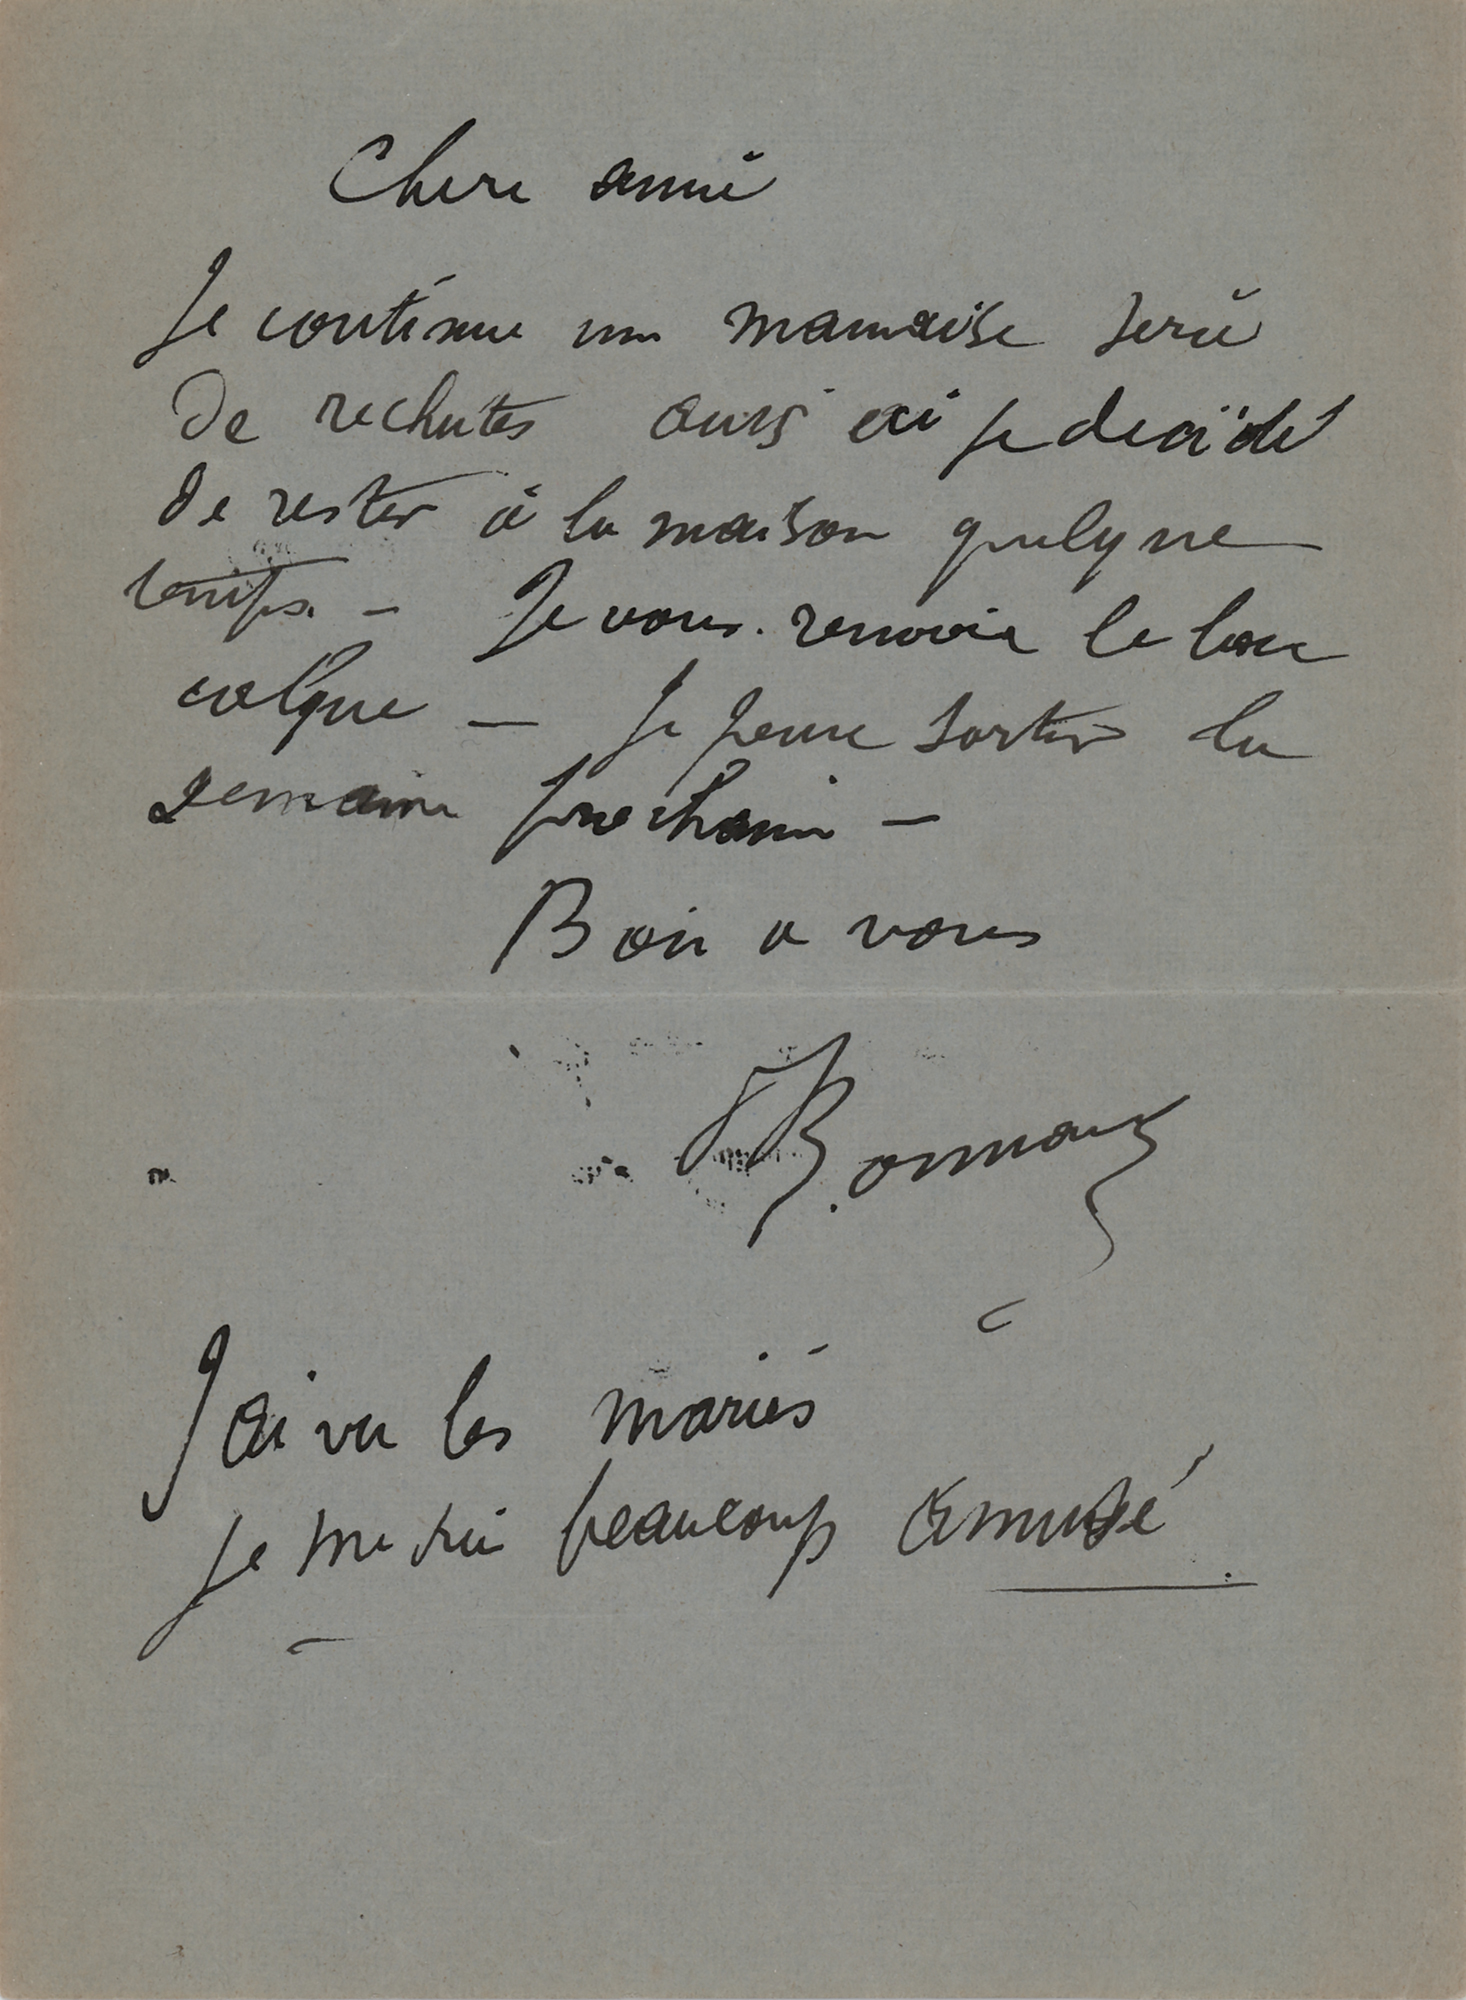 Chere amie
Je continue une mauvaise serie
de rechutes aussi ai je decidé
de rester à la maison quelque
temps. — Je vous renvoie le
colque — Je pense sortir la
semaine prochaine —
Bien a vous
J'ai vu les mariés
Je me suis beaucoup amusé